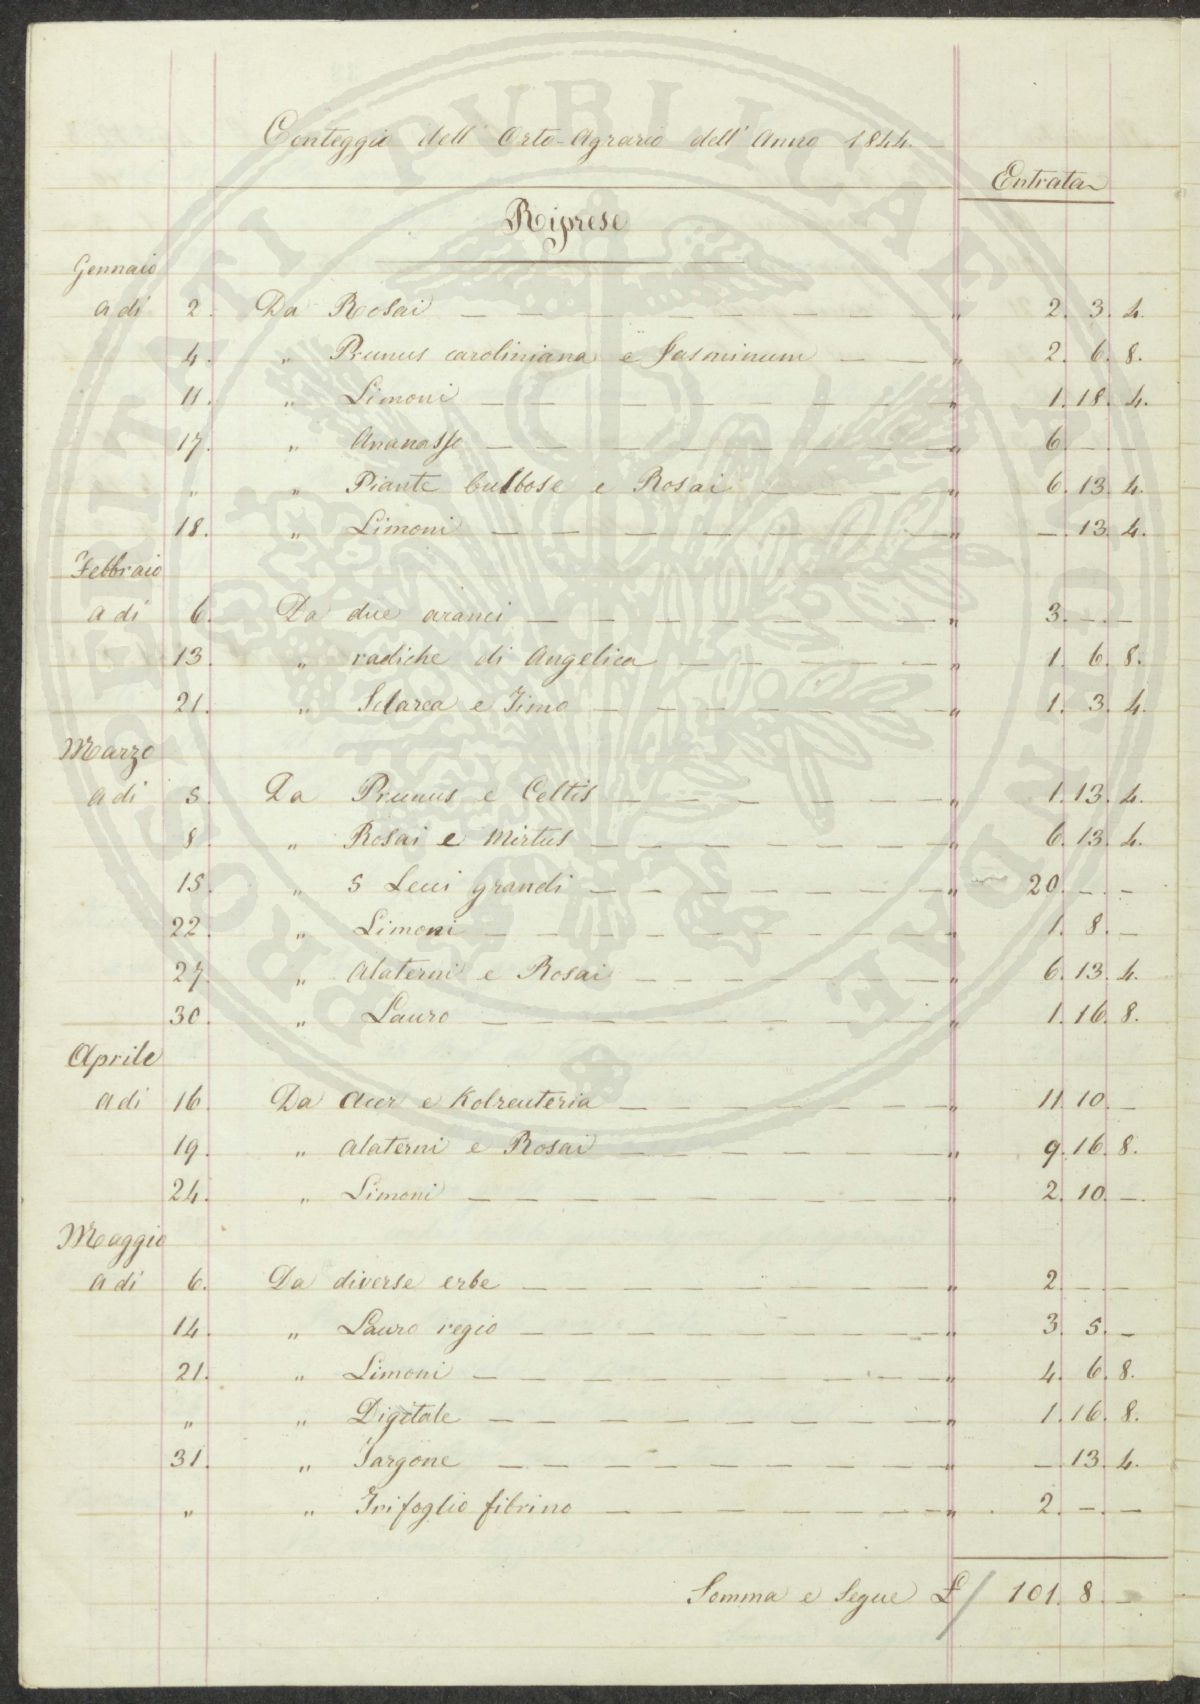 Conteggio dell' Orto-Agrario dell' Anno 1844.
Entrata
Riprese
Gennaio
a di 2. Da Rosai — — — — — — — — „ 2. 3. 4.
4. „ Prunus caroliniana e Jasminum — — „ 2. 6. 8.
11. „ Limoni — — — — — — — — „ 1. 18. 4.
17. „ Ananasse — — — — — — — — „ 6. — —
„ „ Piante bulbose e Rosai — — — — „ 6. 13. 4.
18. „ Limoni — — — — — — — — „ —. 13. 4.
Febbraio
a di 6. Da due aranci — — — — — — — „ 3. —. —
13. „ radiche di Angelica — — — — — „ 1. 6. 8.
21. „ Sclarea e Timo — — — — — — „ 1. 3. 4.
Marzo
a di 5. Da Prunus e Celtis — — — — — — „ 1. 13. 4.
8. „ Rosai e Mirtus — — — — — — „ 6. 13. 4.
15. „ 5 Lecci grandi — — — — — — „ 20. —. —
22. „ Limoni — — — — — — — — „ 1. 8. —
27. „ Alaterni e Rosai — — — — — — „ 6. 13. 4.
30. „ Lauro — — — — — — — — „ 1. 16. 8.
Aprile
a di 16. Da Acer e Kolreuteria — — — — — — „ 11. 10. —
19. „ Alaterni e Rosai — — — — — — „ 9. 16. 8.
24. „ Limoni — — — — — — — — „ 2. 10. —.
Maggio
a di 6. Da diverse erbe — — — — — — — „ 2. —. —
14. „ Lauro regio — — — — — — — „ 3. 5. —
21. „ Limoni — — — — — — — — „ 4. 6. 8.
„ „ Digitale — — — — — — — — „ 1. 16. 8.
31. „ Targone — — — — — — — — „ —. 13. 4.
„ „ Trifoglio fibrino — — — — — — „ 2. —. —
Somma e Segue £ 101. 8. —
PROSPERITATI PUBLICAE AUGENDAE